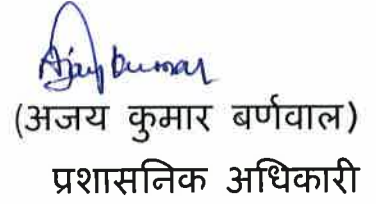 Ajay Kumar
(अजय कुमार बर्णवाल)
प्रशासनिक अधिकारी